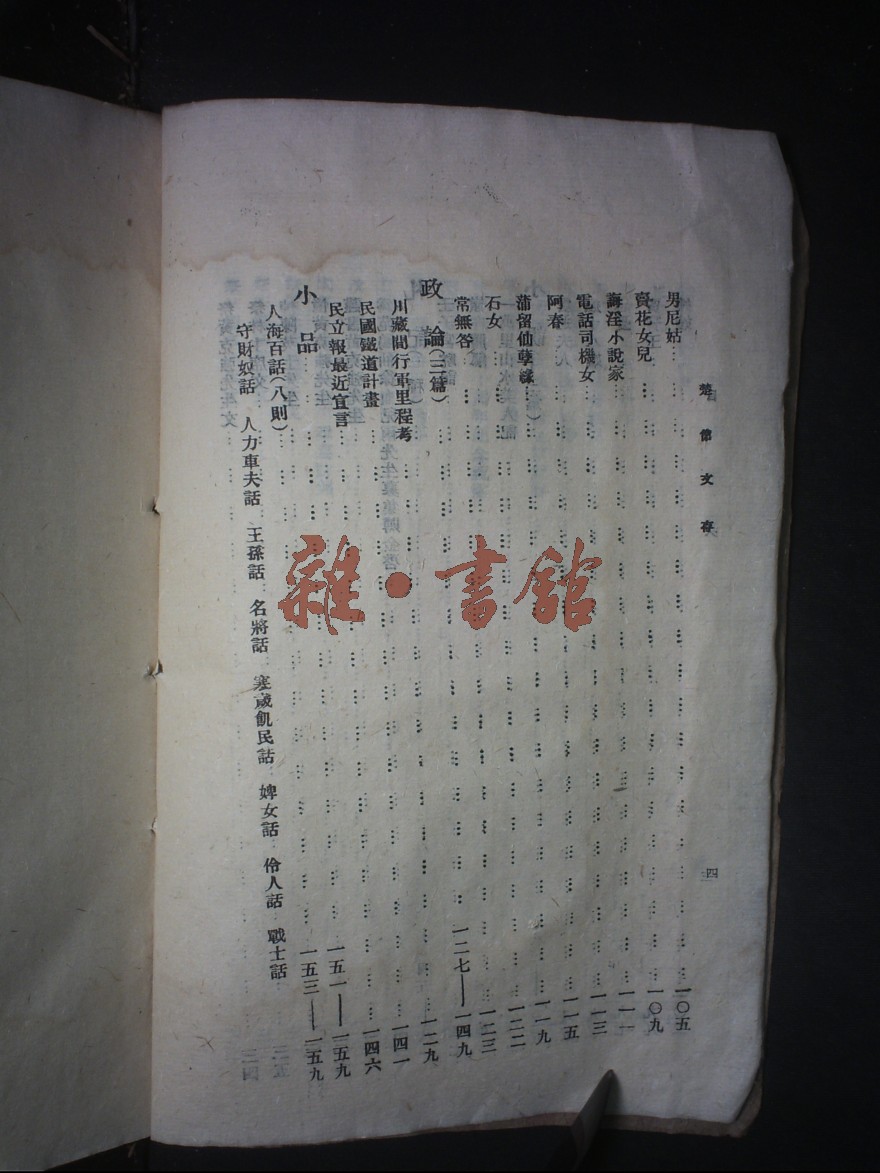 楚傖文存 四
男尼姑……一〇五
賣花女兒……一〇九
誨淫小說家……一一一
電話司機女……一一三
阿春……一一五
蒲留仙孽緣……一一九
石女……一二二
常無咎……一二三
政論(三篇)……一二七——一四九
川藏間行軍里程考……一二九
民國鐵道計畫……一四一
民立報最近宣言……一四六
小品……一五一——一五九
人海百話(八則)……一五三——一五九
守財奴話 人力車夫話 王孫話 名將話 寒歲飢民話 婢女話 伶人話 戰士話
雜·書館